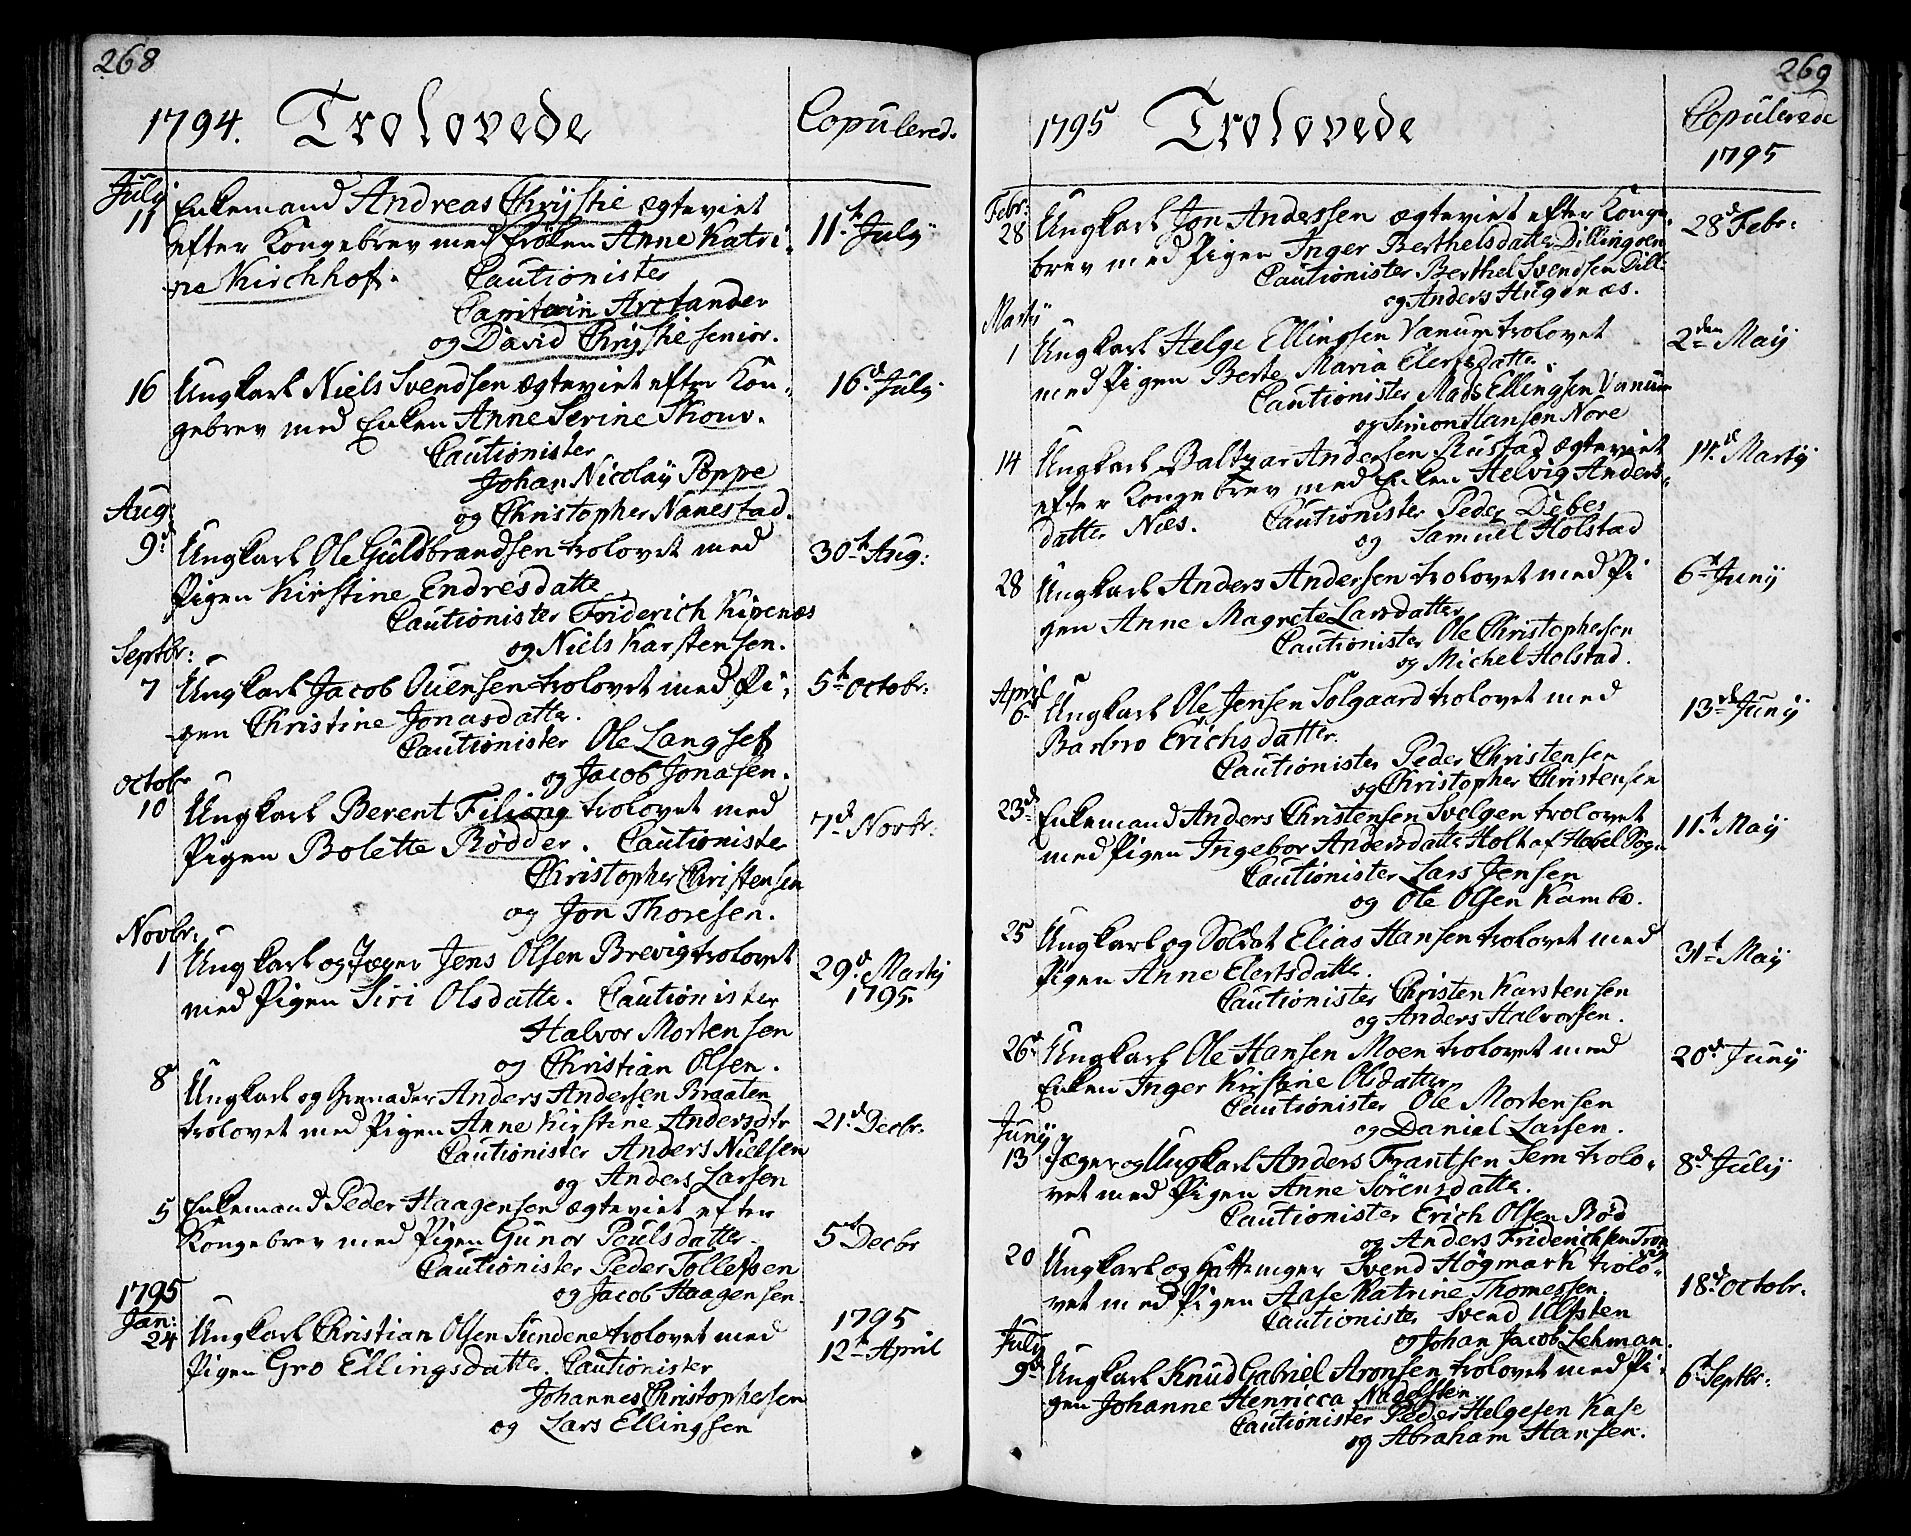 268
1794. Trolovede Copulered.
July
11 Enkemand Andreas Chrystie ægteviet 11te July
efter Kongebrev med frøken Anne Katri-
ne Kirchhof. Cautionister
Capitain Arctander
og David Chrystie senior.
16 Ungkarl Niels Svendsen ægteviet efter Kon- 16d July
gebrev med Enken Anne Serine Skouv.
Cautionister
Johan Nicolaÿ Poppe
og Christopher Nanestad.
Aug:
9d Ungkarl Ole Guldbrandsen trolovet med 30te Aug:
Pigen Kirstine Endresdatter
Cautionister Friderich Kipenæs
og Niels Karstensen.
Septbr:
7 Ungkarl Jacob Ouensen trolovet med Pi- 5te octobr:
gen Christine Jonasdatter.
Cautionister Ole Langset
og Jacob Jonasen.
octobr
10 Ungkarl Berent Filiong trolovet med 7d Novbr:
Pigen Bolette Rødder. Cautionister
Christopher Christensen
og Jon Thoresen.
Novbr:
1 Ungkarl og Jæger Jens Olsen Brevig trolovet 29d Martij
med Pigen Siri Olsdatter. Cautionister 1795.
Halvor Mortensen
og Christian Olsen.
8 Ungkarl og Grenader Anders Andersen Braaten
trolovet med Pigen Anne Kirstine Andersdtr 21d Decbr.
Cautionister Anders Nielsen
og Anders Larsen
5 Enkemand Peder Haagensen ægteviet efter
Kongebrev med Pigen Gunor Poulsdatter. 5te Decbr
Cautionister Peder Tollefsen
og Jacob Haagensen.
1795
Jan: 1795
24 Ungkarl Christian Olsen Sundene trolovet med 12te April
Pigen Gro Ellingsdatter. Cautionister
Johannes Christophersen
og Lars Ellingsen
269
1795 Trolovede Copulerede
1795
Febr:
28 Ungkarl Jon Anderssen ægteviet efter Konge- 28d Febr:
brev med Pigen Inger Berthelsdatter Dillingøen
Cautionister Berthel Svendsen Dill:
og Anders Hugenæs.
Martij
1 Ungkarl Helge Ellingsen Vanum trolovet 2den Maÿ
med Pigen Berte Maria Elertsdatter.
Cautionister Mads Ellingsen Vanum
og Simon Hansen Nore
14 Ungkarl Baltzar Andersen Rustad ægteviet 14d Martij
efter Kongebrev med Enken Helvig Anders-
datter Nies. Cautionister Peder Debes
og Samuel Holstad
28 Ungkarl Anders Andersen trolovet med Pi 6te Junÿ
gen Anne Magrete Larsdatter
Cautionister Ole Christophersen
og Michel Holstad.
April
6 Ungkarl Ole Jensen Solgaard trolovet med 13de Junÿ
Barbro Erichsdatter.
Cautionister Peder Christensen
og Christopher Christensen
23d Enkemand Anders Christensen Svelgen trolovet 11te Maÿ
med Pigen Ingebor Andersdatter Holt af Hobel Sogn
Cautionister Lars Jensen
og Ole Olsen Kambo.
25 Ungkarl og Soldat Elias Hansen trolovet med 31te Maÿ
Pigen Anne Elertsdatter.
Cautionister Christen Karstensen
og Anders Halvorsen.
26d Ungkarl Ole Hansen Moen trolovet med 20d Junÿ
Enken Inger Kirstine Olsdatter
Cautionister Ole Mortensen
og Daniel Larsen.
Junÿ
13 Jæger og Ungkarl Anders Frantsen Sem trolo- 8d Julÿ
vet med Pigen Anne Sørensdatter.
Cautionister Erich Olsen Rød
og Anders Friderichsen Tron
20 Ungkarl og Hattemager Svend Høgmark trolo- 18d octobr.
vet med Pigen Aase Katrine Thomessen.
Cautionister Svend Ulfsten
og Johan Jacob Lehman.
July
9d Ungkarl Knud Gabriel Aronsen trolovet med Pi- 6te Septbr:
gen Johanne Henricca
Cautionister Peder Helgesen Kase
og Abraham Hansen.